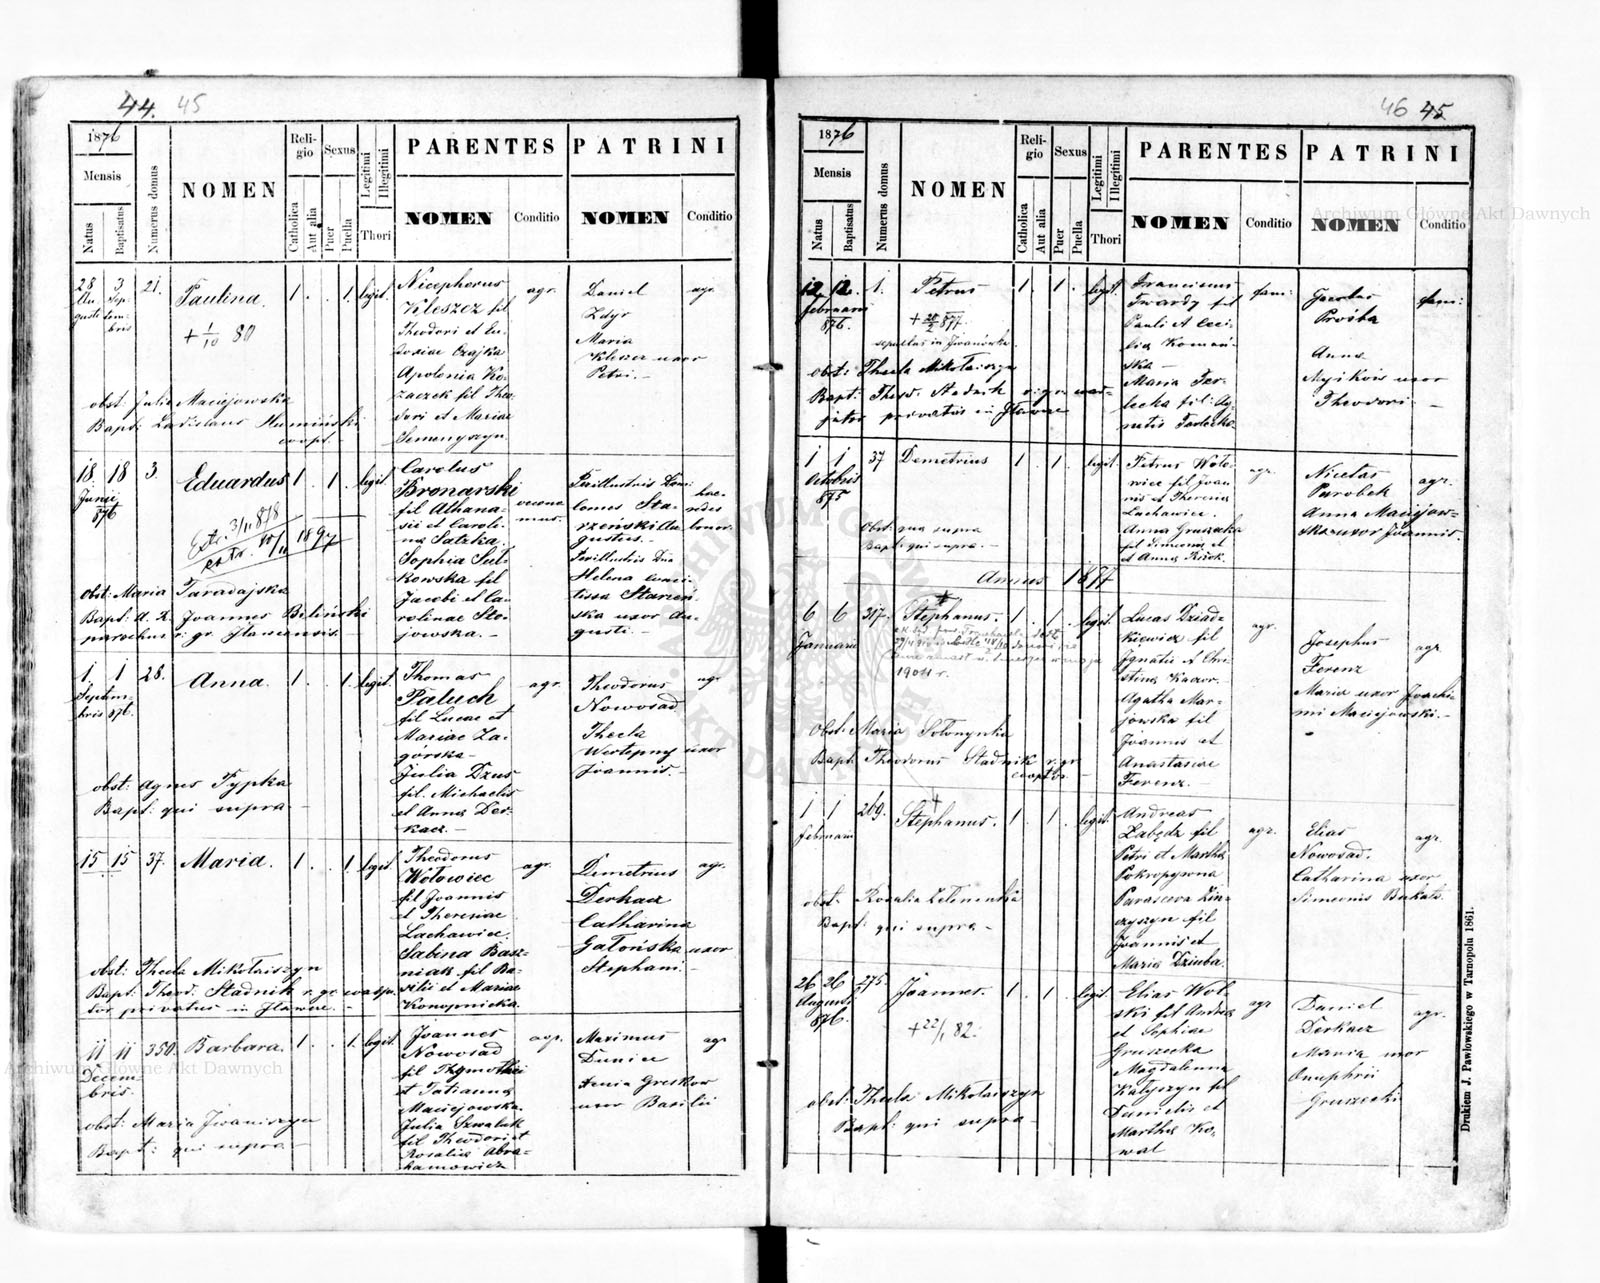 44. 45
1876
Mensis
Natus
Baptisatus
Numerus domus
NOMEN
Religio
Catholica
Aut alia
Sexus
Puer
Puella
Legitimi
Illegitimi
Thori
PARENTES
NOMEN
Conditio
PATRINI
NOMEN
Conditio
28 3 21. Paulina. 1. . . 1. legit.
Augusti Septembris
+ 1/10 80
Nicephorus
Kleszcz fil
Theodori et
Czajka
Apolonia Ko-
zaczek fil Theo-
dori et Mariae
Semenyszyn.
agr.
Daniel
Zdyr
Maria
Kleszcz uxor
Petri. —
agr.
obst: Julia Maciejowska
Bapt: Ladislaus Humiński
coopt. —
18 18 3. Eduardus 1. . 1. . legit.
Junii
876
Extr. 3/11 878
extr. 1897
Carolus
Bronarski
fil Athana-
sii et Caroli-
na Satzka.
Sophia Sul-
kowska fil
Jacobi et Ca-
rolinae Sto-
jowska. —
oecono
mus.
Perillustris Domi-
Comes Sta-
rzeński Au-
gustus.
Perillustris Dna
Helena Comi-
tissa Starzeń-
ska uxor Au-
gusti. —
obst: Maria Taradajska
Bapt: Joannes Biliński
parochus r. gr. Ihawensis. —
1. 1 28. Anna. 1. . . 1. legit.
Septem-
bris 876.
Thomas
Paluch
fil Lucae et
Mariae Za-
górska —
Julia Dzus
fil: Michaelis
et Anna Der-
kacz. —
agr.
Theodorus
Nowosad.
Thecla
Wertepny uxor
Joannis. —
agr
obst: Agnes Pypka
Bapt: qui supra —
15 15 37. Maria. 1. . . 1. legit.
Theodorus
Wołowiec
fil Joannis
et Theresiae
Lachowicz.
Sabina Basz-
niak fil Ba-
silii et Mariae
Konopnicka.
agr.
Demetrius
Derkacz
Catharina
Gatońska uxor
Stephani. —
agr.
obst: Thecla Mikołaiszyn
Bapt: Theod. Stadnik r. gr.
tor privatus in —
11 11 350. Barbara. 1. . . 1. legit.
Decem-
bris.
Joannes
Nowosad
fil Thymothei
et Tatianna
Maciejowska.
Julia Szwaluk
fil Theodori et
Rosalia Abra-
hamowicz
agr.
Maximus
Dunicz
Xenia Greskow
uxor Basilii
agr
obst: Maria Iwaniszyn
Bapt: qui supra —
46 45
1876
Mensis
Natus
Baptisatus
Numerus domus
NOMEN
Religio
Catholica
Aut alia
Sexus
Puer
Puella
Legitimi
Illegitimi
Thori
PARENTES
NOMEN
Conditio
PATRINI
NOMEN
Conditio
12. 12. 1. Petrus 1. . 1. . legit.
februarii
876.
877.
sepultus in Iwanówka.
Franciscus
Twardy fil
Pauli et Ceci-
lia Komań-
ska —
Maria Ter-
lecka fil: Ag-
netis Terlecka.
fam:
Jacobus
Prośba
Anna
Myikois uxor
Theodori —
fam:
obst: Thecla Mikołaiszyn
Bapt: Theod. Stadnik r. gr.
privatus in
1 1 37 Demetrius 1. . 1. . legit.
Octobris
875
Petrus Woło-
wiec fil Joan-
nis et Theresia
Lachowicz.
Anna Gruszecka
fil Simeonis et
et Anna Krok.
agr.
Nicetas
Parobek
Anna Maciejow-
ska uxor Joannis.
agr.
Obst: qua supra
Bapt: qui supra. —
Annus 1877
6 6 317. Stephanus. 1. . 1. . legit.
Januarii
1904 r.
Lucas Dziad-
kiewicz fil
Ignatii et Chri-
stina Kaczor.
Agatha Mar-
jowska fil
Joannis et
Anastasiae
Ferenz.
agr.
Josephus
Ferenz
Maria uxor Joachi-
mi Maciejowski. —
agr.
Obst: Maria Sołonynka
Bapt: Theodorus Stadnik r. gr
cooptor. —
1 1 269. Stephanus. 1. . 1. . legit.
februarii
Andreas
Łabędz fil
Petri et Martha
Pokropywna
Parasceva Zin-
czyszyn fil
Joannis et
Maria Dziuba.
agr.
Elias
Nowosad.
Catharina uxor
Simeonis Bakata.
agr.
obst: Rosalia Zelemenkia
Bapt: qui supra —
26 26 275. Joannes. 1. . 1. . legit.
Augusti
876.
+ 22/1 82.
Elias Wol-
ski fil Andrea
et Sophiae
Gruszecka
Magdalenna
Katyszyn fil
Danielis et
Martha Ko-
wal
agr
Daniel
Derkacz
Maria uxor
Onuphrii
Gruszecki
agr.
obst: Thecla Mikołaiszyn
Bapt: qui supra —
Drukiem J. Pawłowskiego w Tarnopolu 1861.
Archiwum Główne Akt Dawnych
Archiwum Główne Akt Dawnych